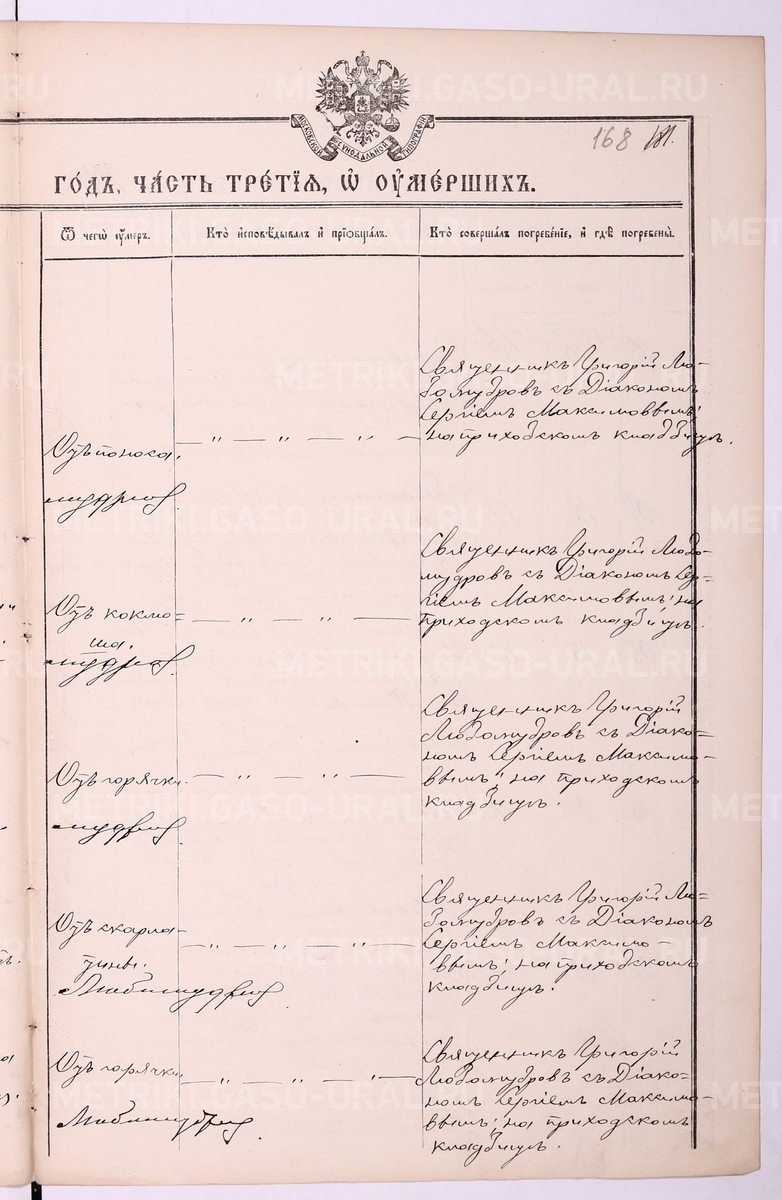 МОСКОВСКОЙ СѴНОДАЛЬНОЙ ТИПОГРАФІИ
168 181.
ГО́ДЪ, ЧА́СТЬ ТРЕ́ТІѦ, Ѡ҆ ОУ҆МЕ́РШИХЪ.
Ѿ чегѡ̀ оу҆́меръ.
Кто̀ и҆сповѣ́дывалъ и҆ прїѡбща́лъ.
Кто̀ соверша́лъ погребе́нїе, и҆ гдѣ̀ погребены̀.
Священникъ Григорій Лю-
бомудровъ съ Діакономъ
Сергіемъ Максимовымъ;
на приходскомъ кладбищѣ.
Отъ поноса. „ „ „
Священникъ Григорій Любо-
мудровъ съ Діакономъ Сер-
гіемъ Максимовымъ; на
приходскомъ кладбищѣ.
Отъ кокмо-
ша. „ „ „
Священникъ Григорій
Любомудровъ съ Діако-
номъ Сергіемъ Максимо-
вымъ; на приходскомъ
кладбищѣ.
Отъ горячки. „ „
Священникъ Григорій Лю-
бомудровъ съ Діакономъ
Сергіемъ Максимо-
вымъ; на приходскомъ
кладбищѣ.
Отъ скарла-
тины. „ „ „
Любомудровъ
Священникъ Григорій
Любомудровъ съ Діако-
номъ Сергіемъ Максимо-
вымъ; на приходскомъ
кладбищѣ.
Отъ горячки. „ „ „
Любомудровъ.
METRIKI.GASO-URAL.RU